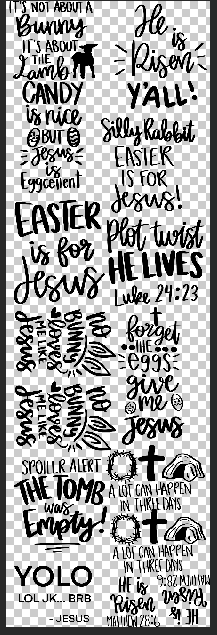 IT'S NOT ABOUT A
Bunny
IT'S ABOUT
THE
Lamb
CANDY
is nice
BUT
Jesus
is
Eggcellent
EASTER
is for
Jesus
NO
BUNNY
loves
ME LIKE
Jesus
NO
BUNNY
loves
ME LIKE
Jesus
SPOILER ALERT
THE TOMB
was
Empty!
YOLO
LOL JK... BRB
- JESUS
He
is
Risen
Y'ALL!
Silly Rabbit
EASTER
IS FOR
Jesus!
Plot twist
HE LIVES
Luke 24:23
forget
THE
eggs
give
me
Jesus
A LOT CAN HAPPEN
IN THREE DAYS
A LOT CAN HAPPEN
IN THREE DAYS
HE is
Risen
MATTHEW 28:6
HE is
Risen
MATTHEW 28:6